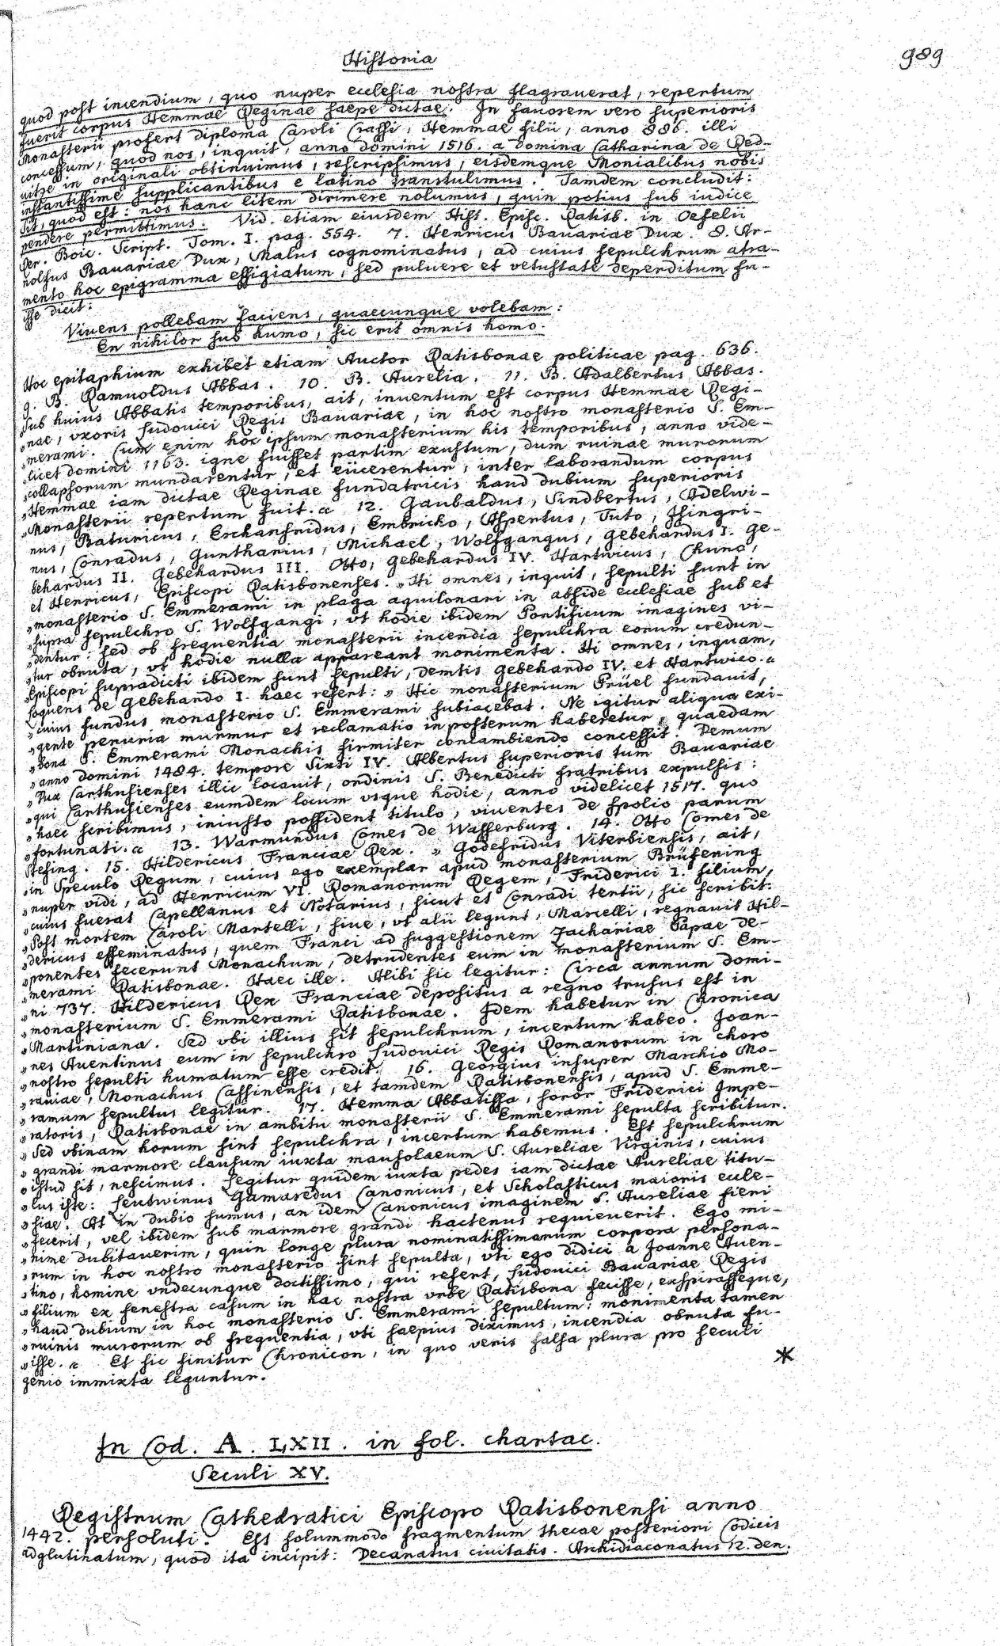 Historia
989
quod post incendium, quo nuper ecclesia nostra flagrauerat, repertum
fuerit corpus Hemmae Reginae saepe dictae. In fauorem vero superioris
Monasterii profert diploma Caroli Crassi, Hemmae filii, anno 886. illi
concessum, quod nos, inquit, anno domini 1516. a domina Catharina de Red-
uitze in originali obtinuimus, rescripsimus, eisdemque Monialibus nobis
instantissime supplicantibus e latino transtulimus. Tamdem concludit:
sit, quod est: nos hanc litem dirimere nolumus, quin potius sub iudice
pendere permittimus. Vid. etiam eiusdem Hist. Episc. Ratisb. in Oefelii
Rer. Boic. Script. Tom. I. pag. 554. 7. Henricus Bauariae Dux. 8. Ar-
nolfus Bauariae Dux, Malus cognominatus, ad cuius sepulchrum atra-
mento hoc epigramma effigiatum, sed puluere et vetustate deperditum fu-
isse dicit:
Viuens pollebam faciens, quaecunque volebam:
En nihilor sub humo, sic erit omnis homo.
Hoc epitaphium exhibet etiam Auctor Ratisbonae politicae pag. 636.
9. B. Ramuoldus Abbas. 10. B. Aurelia. 11. B. Adalbertus Abbas.
„Sub huius Abbatis temporibus, ait, inuentum est corpus Hemmae Regi-
„nae, vxoris Ludouici Regis Bauariae, in hoc nostro monasterio S. Em-
„merami. Cum enim hoc ipsum monasterium his temporibus, anno vide-
„licet domini 1163. igne fuisset partim exustum, dum ruinae murorum
„collapsorum mundarentur, et eiicerentur, inter laborandum corpus
„Hemmae iam dictae Reginae fundatricis haud dubium superioris
„Monasterii repertum fuit.„ 12. Gaubaldus, Sindbertus, Adelwi-
nus, Baturicus, Erchanfridus, Embricho, Aspertus, Tuto, Isingri-
nus, Conradus, Guntharius, Michael, Wolfgangus, Gebehardus I. Ge-
behardus II. Gebehardus III. Otto, Gebehardus IV. Hartwicus, Chuno,
et Henricus, Episcopi Ratisbonenses. „Hi omnes, inquit, sepulti sunt in
„monasterio S. Emmerami in plaga aquilonari in abside ecclesiae sub et
„supra sepulchro S. Wolfgangi, vt hodie ibidem Pontificum imagines vi-
„dentur: sed ob frequentia monasterii incendia sepulchra eorum credun-
„tur obruta, vt hodie nulla appareant monimenta. Hi omnes, inquam,
„Episcopi supradicti ibidem sunt sepulti, demtis Gebehardo IV. et Hartwico.„
Loquens de Gebehardo I. haec refert: „Hic monasterium Prüel fundauit,
„cuius fundus monasterio S. Emmerami subiacebat. Ne igitur aliqua exi-
„gente penuria murmur et reclamatio in posterum haberetur, quaedam
„bona S. Emmerami Monachis firmiter conlambiendo concessit. Demum
„anno domini 1484. tempore Sixti IV. Albertus superioris tum Bauariae
„Dux Carthusienses illic locauit, ordinis S. Benedicti fratribus expulsis:
„qui Carthusienses eumdem locum vsque hodie, anno videlicet 1517. quo
„haec scribimus, iniusto possident titulo, viuentes de spolio parum
„fortunati.„ 13. Warmundus Comes de Wasserburg. 14. Otto Comes de
Stefing. 15. Hildericus Franciae Rex. „Godefridus Viterbiensis, ait,
„in Speculo Regum, cuius ego exemplar apud monasterium Brüfening
„nuper vidi, ad Henricum VI. Romanorum Regem, Friderici I. filium,
„cuius fuerat Capellanus et Notarius, sicut et Conradi tertii, sic scribit:
„Post mortem Caroli Martelli, siue, vt alii legunt, Marcelli, regnauit Hil-
„dericus effeminatus, quem Franci ad suggestionem Zachariae Papae de-
„ponentes fecerunt Monachum, detrudentes eum in monasterium S. Em-
„merami Ratisbonae. Haec ille. Alibi sic legitur: Circa annum domi-
„ni 737. Hildericus Rex Franciae depositus a regno trusus est in
„monasterium S. Emmerami Ratisbonae. Idem habetur in Chronica
„Martiniana. Sed vbi illius sit sepulchrum, incertum habeo. Joan-
„nes Auentinus eum in sepulchro Ludouici Regis Romanorum in choro
„nostro sepulti humatum esse credit. 16. Georgius insuper Marchio Mo-
„rauiae, Monachus Cassinensis, et tamdem Ratisbonensis, apud S. Emme-
„ramum sepultus legitur. 17. Hemma Abbatissa, soror Friderici Impe-
„ratoris, Ratisbonae in ambitu monasterii S. Emmerami sepulta scribitur.
„Sed vbinam horum sint sepulchra, incertum habemus. Est sepulchrum
„grandi marmore clausum iuxta mausolaeum S. Aureliae Virginis, cuius
„istud sit, nescimus. Legitur quidem iuxta pedes iam dictae Aureliae titu-
„lus iste: Leutwinus Gamaredus Canonicus, et Scholasticus maioris eccle-
„siae. At in dubio sumus, an idem Canonicus imaginem S. Aureliae fieri
„fecerit, vel ibidem sub marmore grandi hactenus requieuerit. Ego mi-
„nime dubitauerim, quin longe plura nominatissimarum corpora persona-
„rum in hoc nostro monasterio sint sepulta, vti ego didici a Joanne Auen-
„tino, homine vndecunque doctissimo, qui refert, Ludouici Bauariae Regis
„filium ex fenestra casum in hac nostra vrbe Ratisbona fecisse, exspirasseque,
„haud dubium in hoc monasterio S. Emmerami sepultum: monimenta tamen
„ruinis murorum ob frequentia, vti saepius diximus, incendia obruta fu-
„isse.„ Et sic finitur Chronicon, in quo veris falsa plura pro seculi
genio immixta leguntur. *
In Cod. A. LXII. in fol. chartac.
Seculi XV.
Registrum Cathedratici Episcopo Ratisbonensi anno
1442. persoluti. Est solummodo fragmentum thecae posteriori Codicis
adglutinatum, quod ita incipit: Decanatus ciuitatis. Archidiaconatus 12. den.